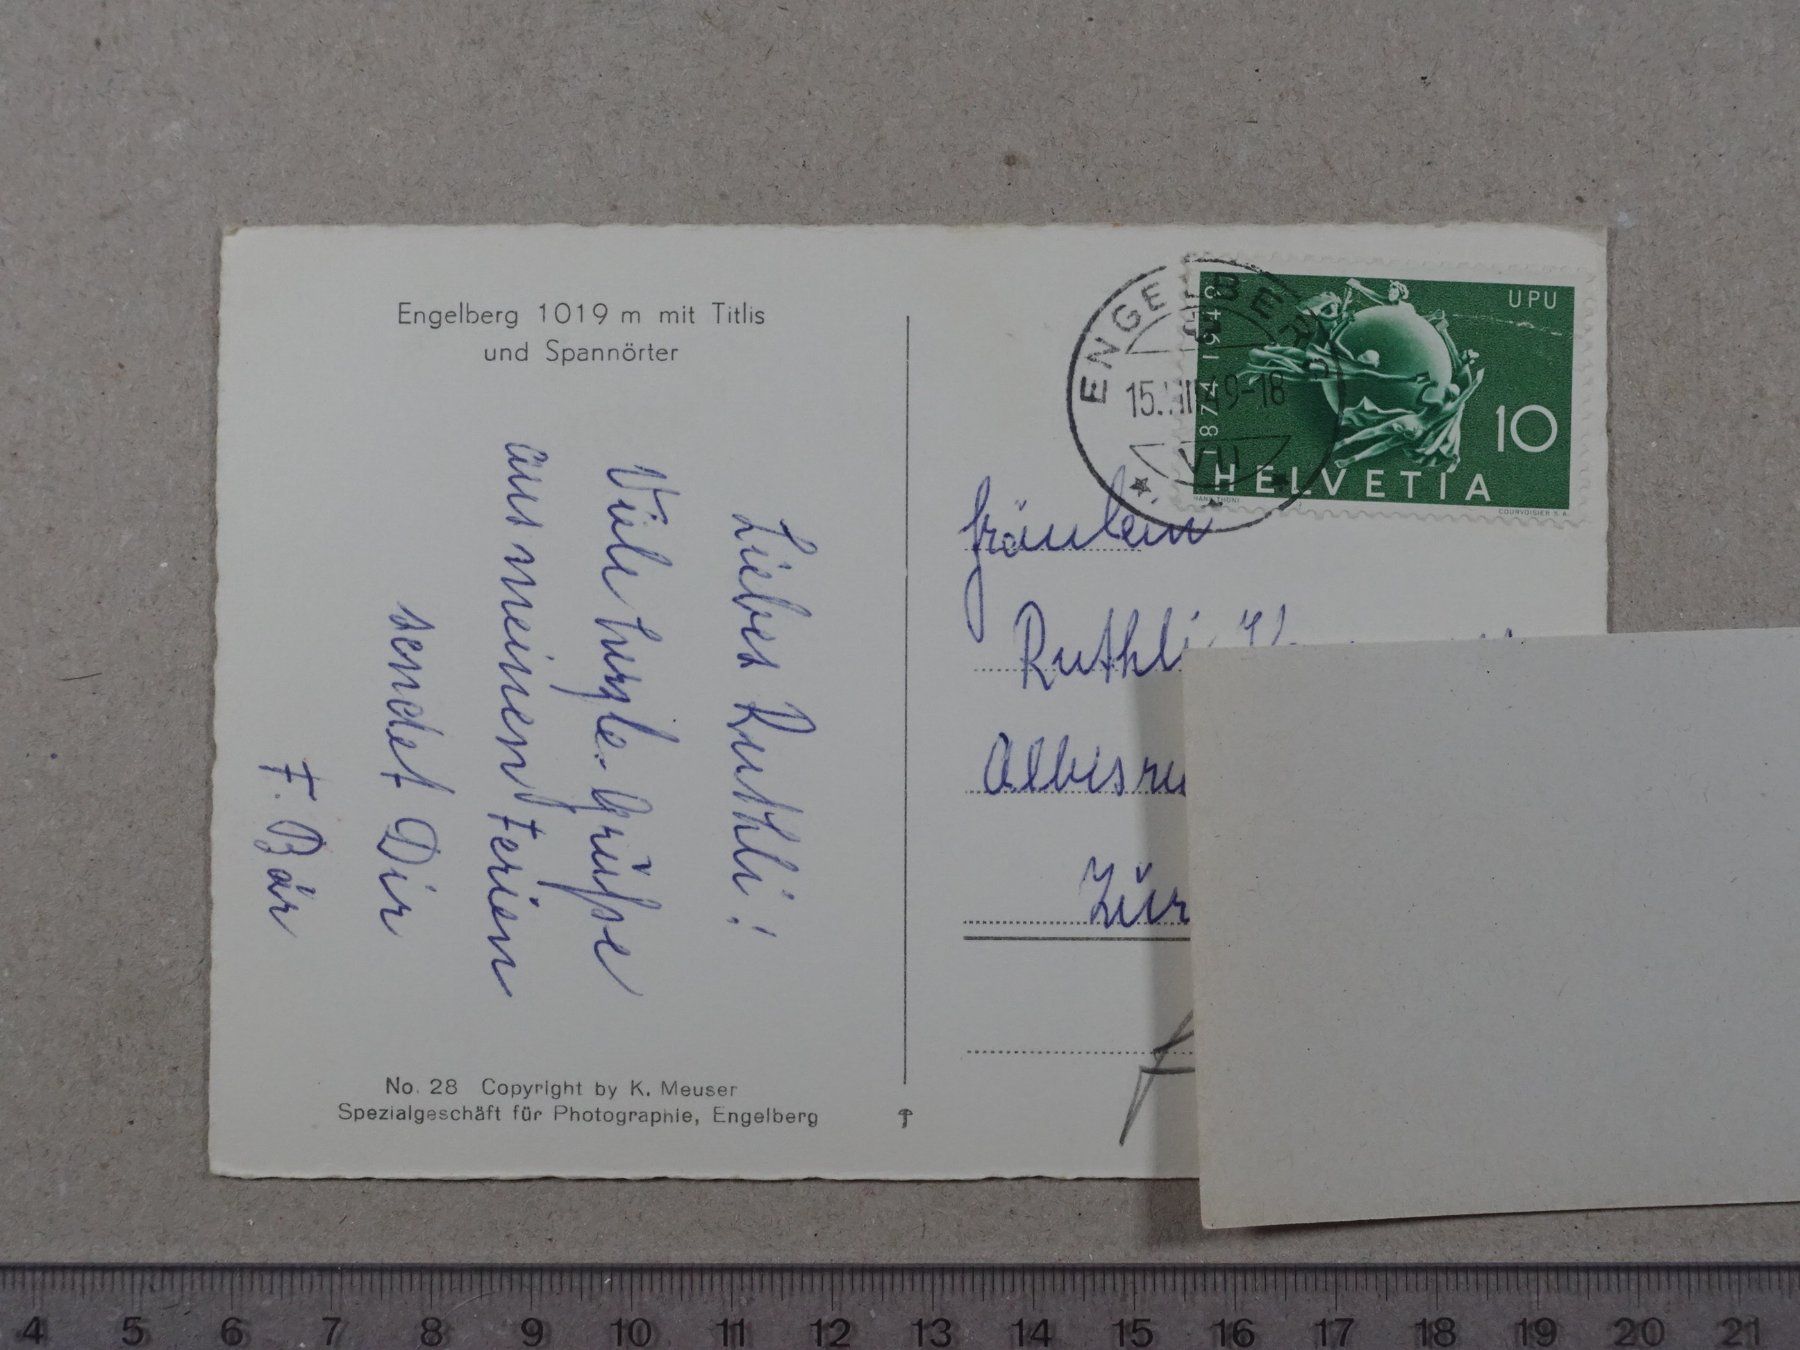 Engelberg 1019 m mit Titlis
und Spannörter
Liebes Ruthli!
Viele herzle. Grüße
aus meinen Ferien
sendet Dir
F. Bär
No. 28 Copyright by K. Meuser
Spezialgeschäft für Photographie, Engelberg
ENGELBERG
15.VIII.49-18
1874 1949
UPU
10
HELVETIA
HANS THÖNI
COURVOISIER S.A.
Fräulein
Ruthli
Albisru
Zür
4 5 6 7 8 9 10 11 12 13 14 15 16 17 18 19 20 21